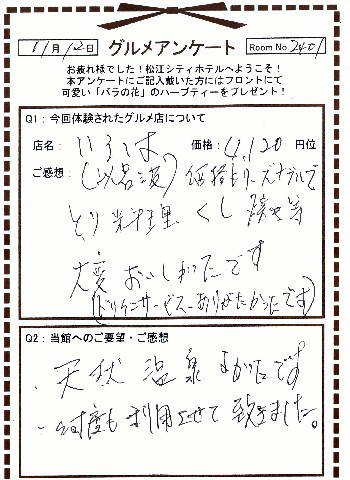 11月12日 グルメアンケート Room No. 2401
お疲れ様でした!松江シティホテルへようこそ!
本アンケートにご記入戴いた方にはフロントにて
可愛い「バラの花」のハーブティーをプレゼント!
Q1:今回体験されたグルメ店について
店名: いろは 価格: 4,120 円位
ご感想: (以呂波) 価格もリーズナブルで
とり料理、くし焼き等
大変おいしかったです
(ドリンクサービスありがたかったです)
Q2:当館へのご要望・ご感想
・天然温泉よかったです
・何度も利用させて頂きました。